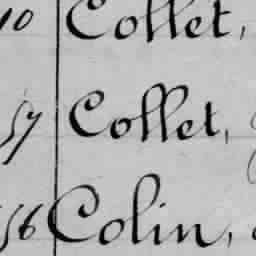 10 Collet,
57 Collet,
56 Colin,